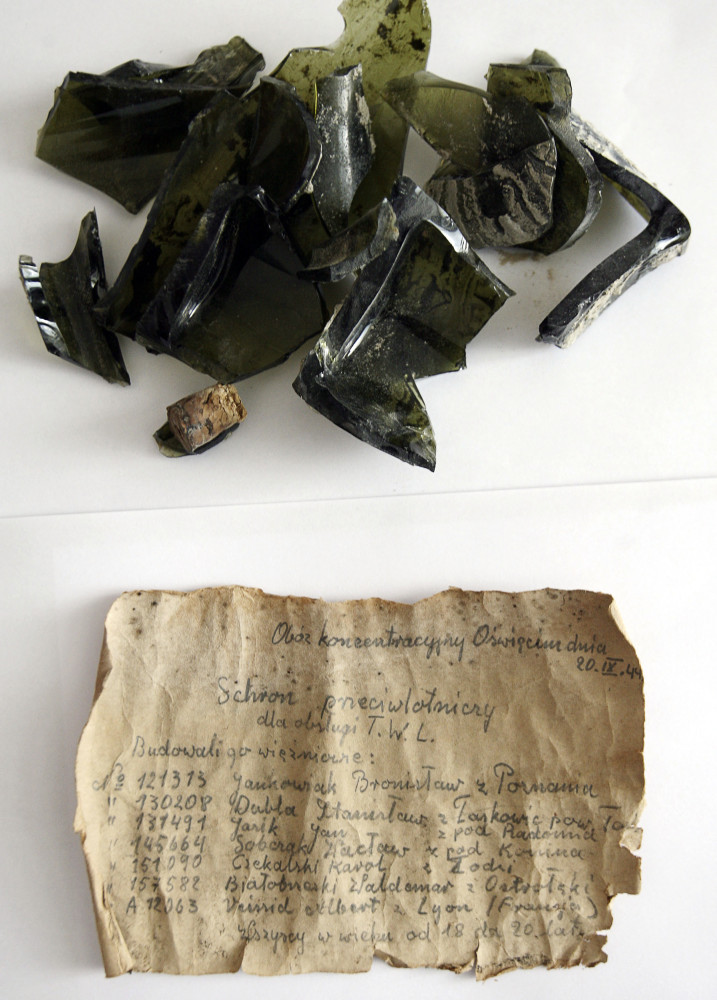 Obóz koncentracyjny Oświęcim dnia
20.IV.44
Schron przeciwlotniczy
dla obsługi T.W.L.
Budowali go więźniowie:
No 121313 Jankowiak Bronisław z Poznania
" 130208 Dubla Stanisław z Łaskowic pow.
" 131491 Jasik Jan z pod Radomia
" 145664 Sobczak Wacław z pod Konina
" 151090 Czekalski Karol z Łodzi
" 157582 Białobrzeski Waldemar z Ostrołęki
A 12063 Veissid Albert z Lyon (Francja)
Wszyscy w wieku od 18 do 20 lat.